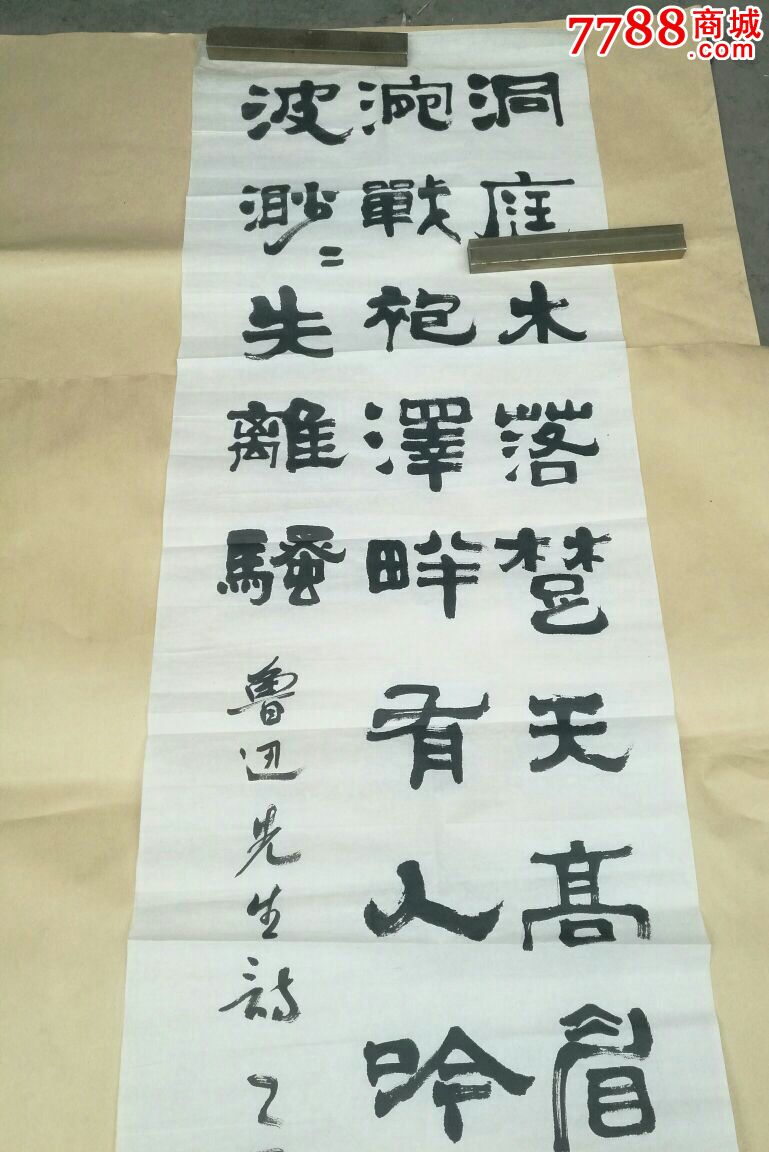 7788商城
.com
洞庭木落楚天高眉
涴戰袍澤畔有人吟
波渺〻失離騷
魯迅先生詩乙